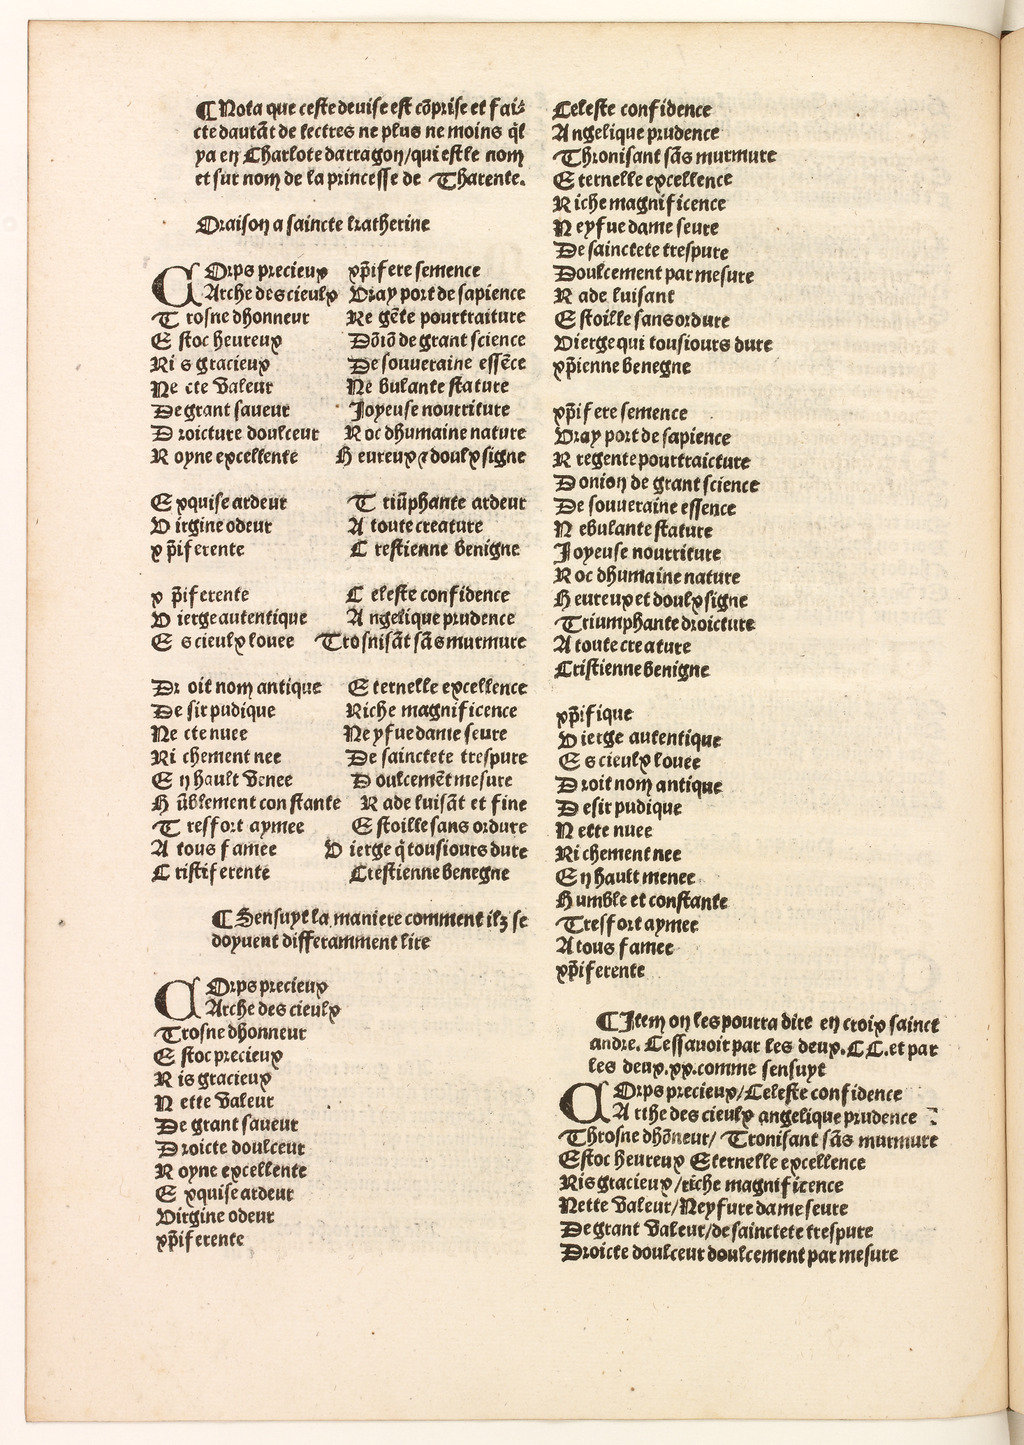 ¶ Nota que ceste deuise est cōprise et fai-
cte dautāt de lectres ne plus ne moins q̄l
ya en Charlote darragon/qui est le nom
et sur nom de la princesse de Tharente.
Oraison a saincte katherine
COrps precieux xp̄ifere semence
Arche des cieulx Vray port de sapience
Trosne dhonneur Re gēte pourtraiture
Estoc heureux Dōiō de grant science
Ris gracieux De souueraine essēce
Necte Valeur Nebulante stature
De grant saueur Joyeuse nourriture
Droicture doulceur Roc dhumaine nature
Royne excellente Heureux ⁊ doulx signe
Exquise ardeur Triūphante ardeur
Virgine odeur A toute creature
xp̄iferente Crestienne benigne
xp̄iferente Celeste confidence
Vierge autentique Angelique prudence
Es cieulx louee Trosnisāt sās murmure
Droit nom antique Eternelle excellence
Desir pudique Riche magnificence
Necte nuee Neyfue dame seure
Richement nee De sainctete trespure
En hault Venee Doulcemēt mesure
Hūblement constante Rade luisāt et fine
Tresfort aymee Estoille sans ordure
A tous famee Vierge q̄ tousiours dure
Cristiferente Crestienne benegne
¶ Sensuyt la maniere comment ilz se
doyuent differamment lire
COrps precieux
Arche des cieulx
Trosne dhonneur
Estoc precieux
Ris gracieux
Nette Valeur
De grant saueur
Droicte doulceur
Royne excellente
Exquise ardeur
Virgine odeur
xp̄iferente
Celeste confidence
Angelique prudence
Thronisant sās murmure
Eternelle excellence
Riche magnificence
Neyfue dame seure
De sainctete trespure
Doulcement par mesure
Rade luisant
Estoille sans ordure
Vierge qui tousiours dure
xp̄ienne benegne
xp̄ifere semence
Vray port de sapience
Rregente pourtraicture
Donion de grant science
De souueraine essence
Nebulante stature
Joyeuse nourriture
Roc dhumaine nature
Heureux et doulx signe
Triumphante droicture
A toute creature
Cristienne benigne
xp̄ifique
Vierge autentique
Es cieulx louee
Droit nom antique
Desir pudique
Nette nuee
Richement nee
En hault menee
Humble et constante
Tresfort aymee
A tous famee
xp̄iferente
¶ Item on les pourra dire en croix sainct
andre. Cessauoir par les deux.CC.et par
les deux.xx.comme sensuyt
COrps precieux/Celeste confidence
Arche des cieulx angelique prudence
Throsne dhōneur/ Tronisant sās murmure
Estoc heureux Eternelle excellence
Ris gracieux/riche magnificence
Nette Valeur/Neyfure dame seure
De grant Valeur/de sainctete trespure
Droicte doulceur doulcement par mesure